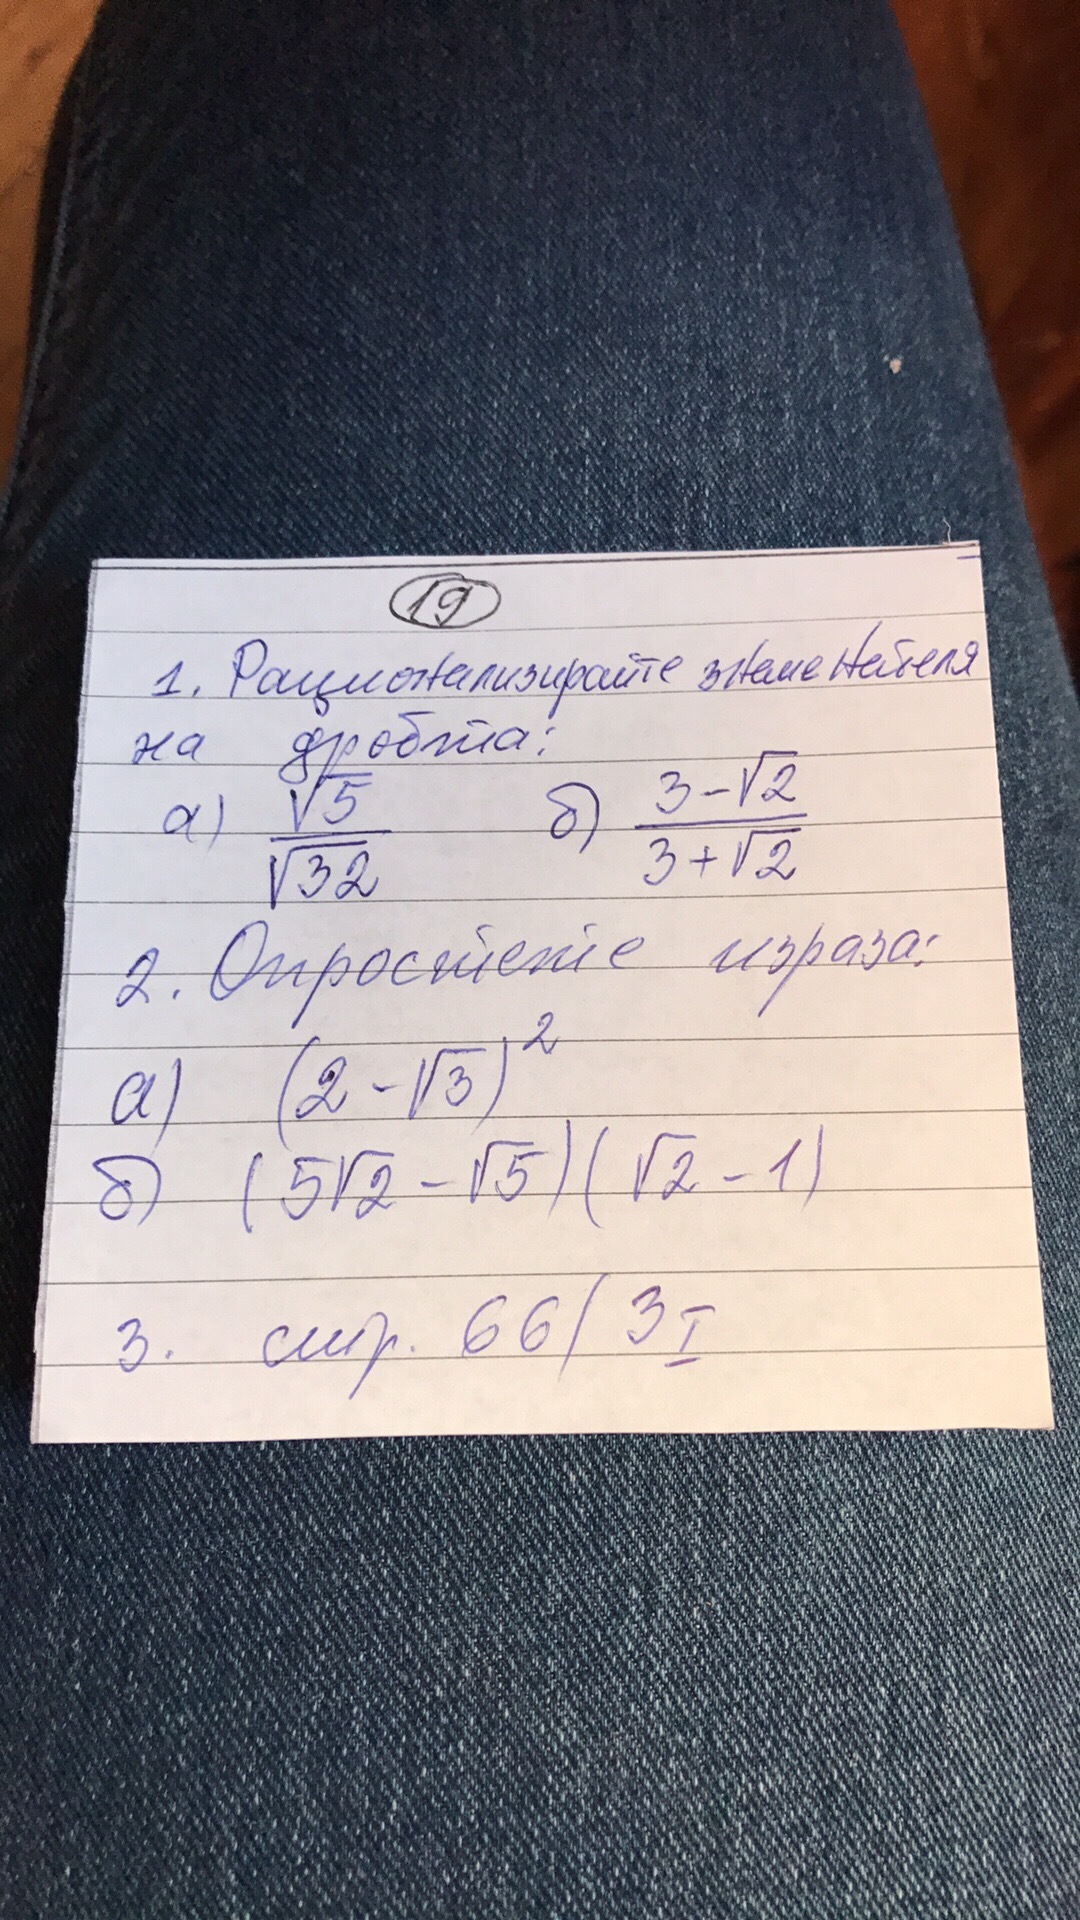 19
1. Рационализирайте знаменателя
на дробта:
а) √5/√32 б) (3-√2)/(3+√2)
2. Опростете израза:
а) (2-√3)²
б) (5√2-√5)(√2-1)
3. стр. 66/3 I